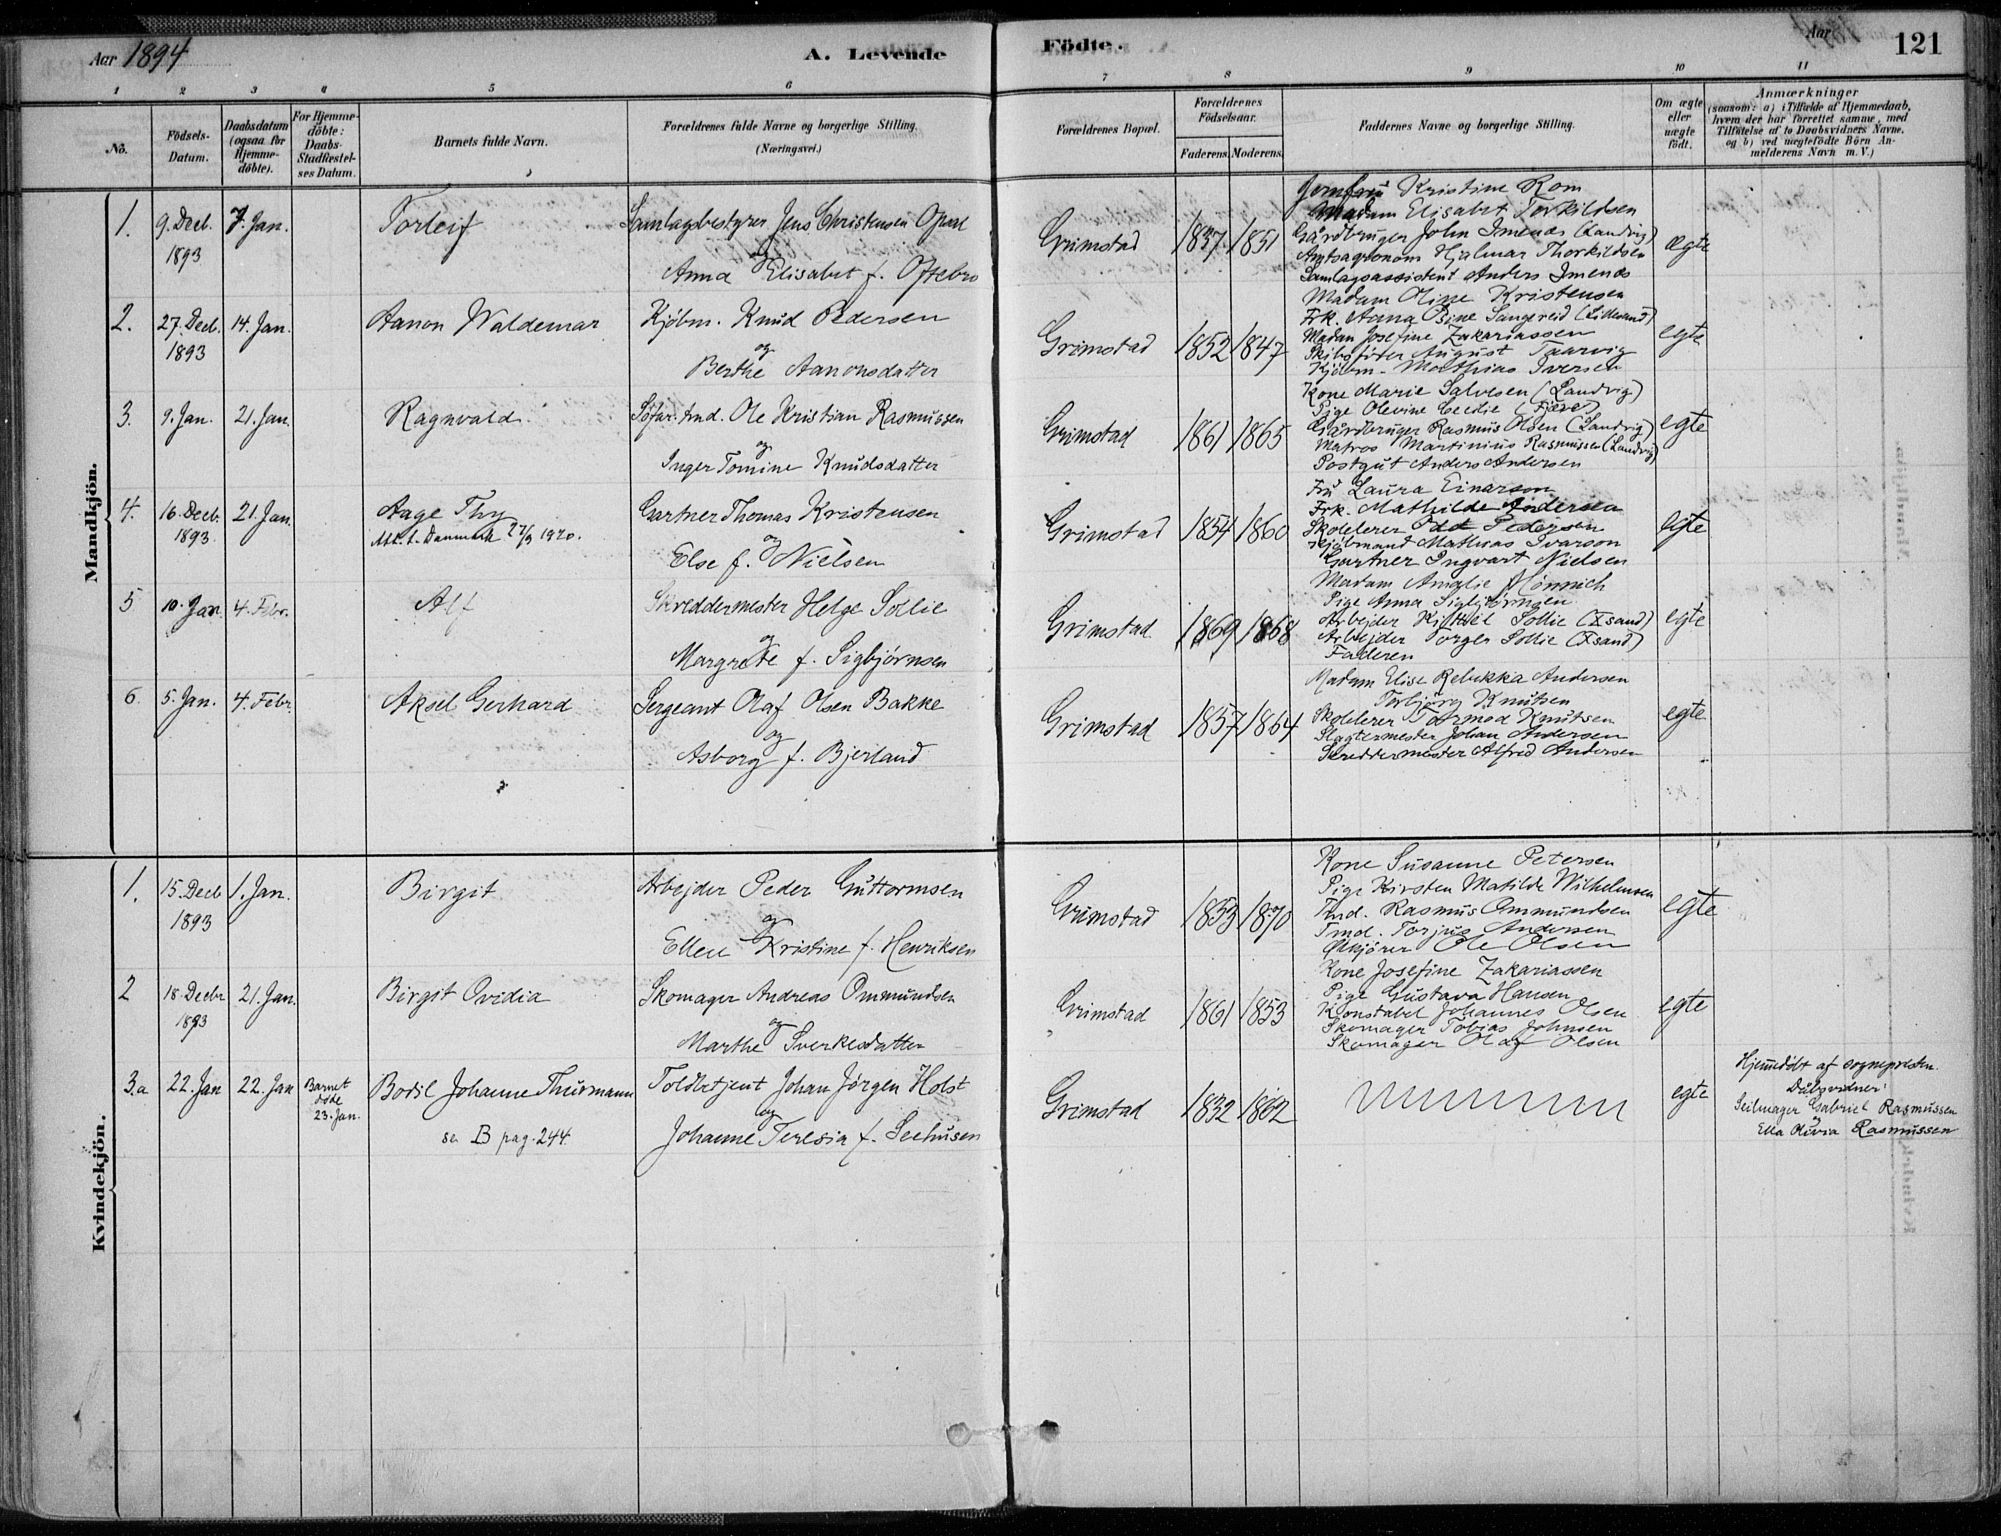 Aar 1894
A. Levende
Födte.
Aar
121
1 2 3 4 5 6 7 8 9 10 11
No.
Födsels-Datum.
Daabsdatum (ogsaa for Hjemme-döbte).
For Hjemme-döbte: Daabs-Stadfæstel-ses Datum.
Barnets fulde Navn.
Forældrenes fulde Navne og borgerlige Stilling.
(Næringsvei.)
Forældrenes Bopæl.
Forældrenes Födselsaar.
Faderens. Moderens.
Faddernes Navne og borgerlige Stilling.
Om ægte eller uægte födt.
Anmærkninger
(saasom: a) i Tilfælde af Hjemmedaab, hvem der har forrettet samme, med Tilföielse af to Daabsvidners Navne, og b) ved uægtefödte Börn Anmelderens Navn m. V.)
Mandkjön.
1. 9. Decb. 1893 7. Jan. Torleif
Samlagsbestyrer Jens Christensen
og
Anna Elisabet f. Oftebro
Grimstad 1857 1851
Jomfru Kristine Rom
Madam Elisabet Torkildsen
Gårdbruger John Imenæs (Landvig)
Amtsagronom Hjalmar Thorkildsen
Samlagsassistent Anders Imenæs
ægte
2. 27. Decb. 1893 14. Jan. Aanon Waldemar
Kjöbm. Knud Pedersen
og
Berthe Aanonsdatter
Grimstad 1852 1847
Madam Oline Kristensen
Frk. Anna Sangereid (Lillesand)
Madam Josefine Zakariassen
Skibsfører August Taarvig
Kjöbm. Mathias Iversen
egte
3. 9. Jan. 21. Jan. Ragnvald.
Søfar. Tmd. Ole Kristian Rasmussen
og
Inger Tomine Knudsdatter
Grimstad 1861 1865
Kone Marie Salvesen (Landvig)
Pige Olevine Cecilie (Fjære)
Gårdbruger Rasmus Olsen (Landvig)
Matros Martinius Rasmussen (Landvig)
Postgut Anders Andersen
egte
4. 16. Decb. 1893 21. Jan. Aage Thy
Att. t. Danmark 27/3 1920.
Gartner Thomas Kristensen
og
Else f. Nielsen
Grimstad 1854 1860
Fru Laura Einarson
Frk. Mathilde Andersen
Skolelerer Odd Pedersen
Kjöbmand Mathias Ivarson
Gartner Ingvart Nielsen
egte
5 10. Jan. 4. Febr. Alf
Skreddermester Helge Sollie
og
Margrete f. Sigbjørnsen
Grimstad 1869 1868
Madam Amalie Mönnich
Pige Anna Sigbjörnsen
Arbejder Kittel Sollie (Xsand)
Arbejder Torger Sollie (Xsand)
Faderen
egte
6 5. Jan. 4. Febr. Aksel Gerhard
Sergeant Olaf Olsen Bakke
og
Asborg f. Bjerland
Grimstad 1857 1864
Madam Elise Rebukka Andersen
Torbjörg Knutsen
Skolelerer Tormod Knutsen
Slagtermester Johan Andersen
Skreddermester Alfred Andersen
egte
Kvindekjön.
1. 15. Decb 1893 1. Jan. Birgit
Arbejder Peder Guttormsen
og
Ellen Kristine f. Henriksen
Grimstad 1853 1870
Kone Susanne Petersen
Pige Kirsten Matilde Wilhelmsen
Tmd. Rasmus Ommundsen
Tmd. Torjus Andersen
Ole Olsen
egte
2 18. Decbr 1893 21. Jan. Birgit Ovidia
Skomager Andreas Ommundsen
og
Marthe Sverkesdatter
Grimstad 1861 1853
Kone Josefine Zakariassen
Pige Gustava Hansen
Konstabel Johannes Olsen
Skomager Tobias Johnsen
Skomager Olaf Olsen
egte
3.a 22. Jan 22. Jan Barnet döde 23. Jan. Bodil Johanne Thurmann
se B pag. 244.
Toldbetjent Johan Jørgen Holst
og
Johanne Teresia f. Seehusen
Grimstad 1832 1862
egte
Hjemmedøbt af sognepresten.
Dåbsvidner:
Seilmager Gabriel Rasmussen
Ella Olivia Rasmussen